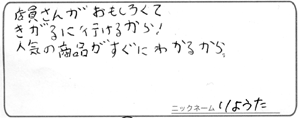 店員さんがおもしろくて
きがるに行けるから!
人気の商品がすぐにわかるから。
ニックネーム りょうた